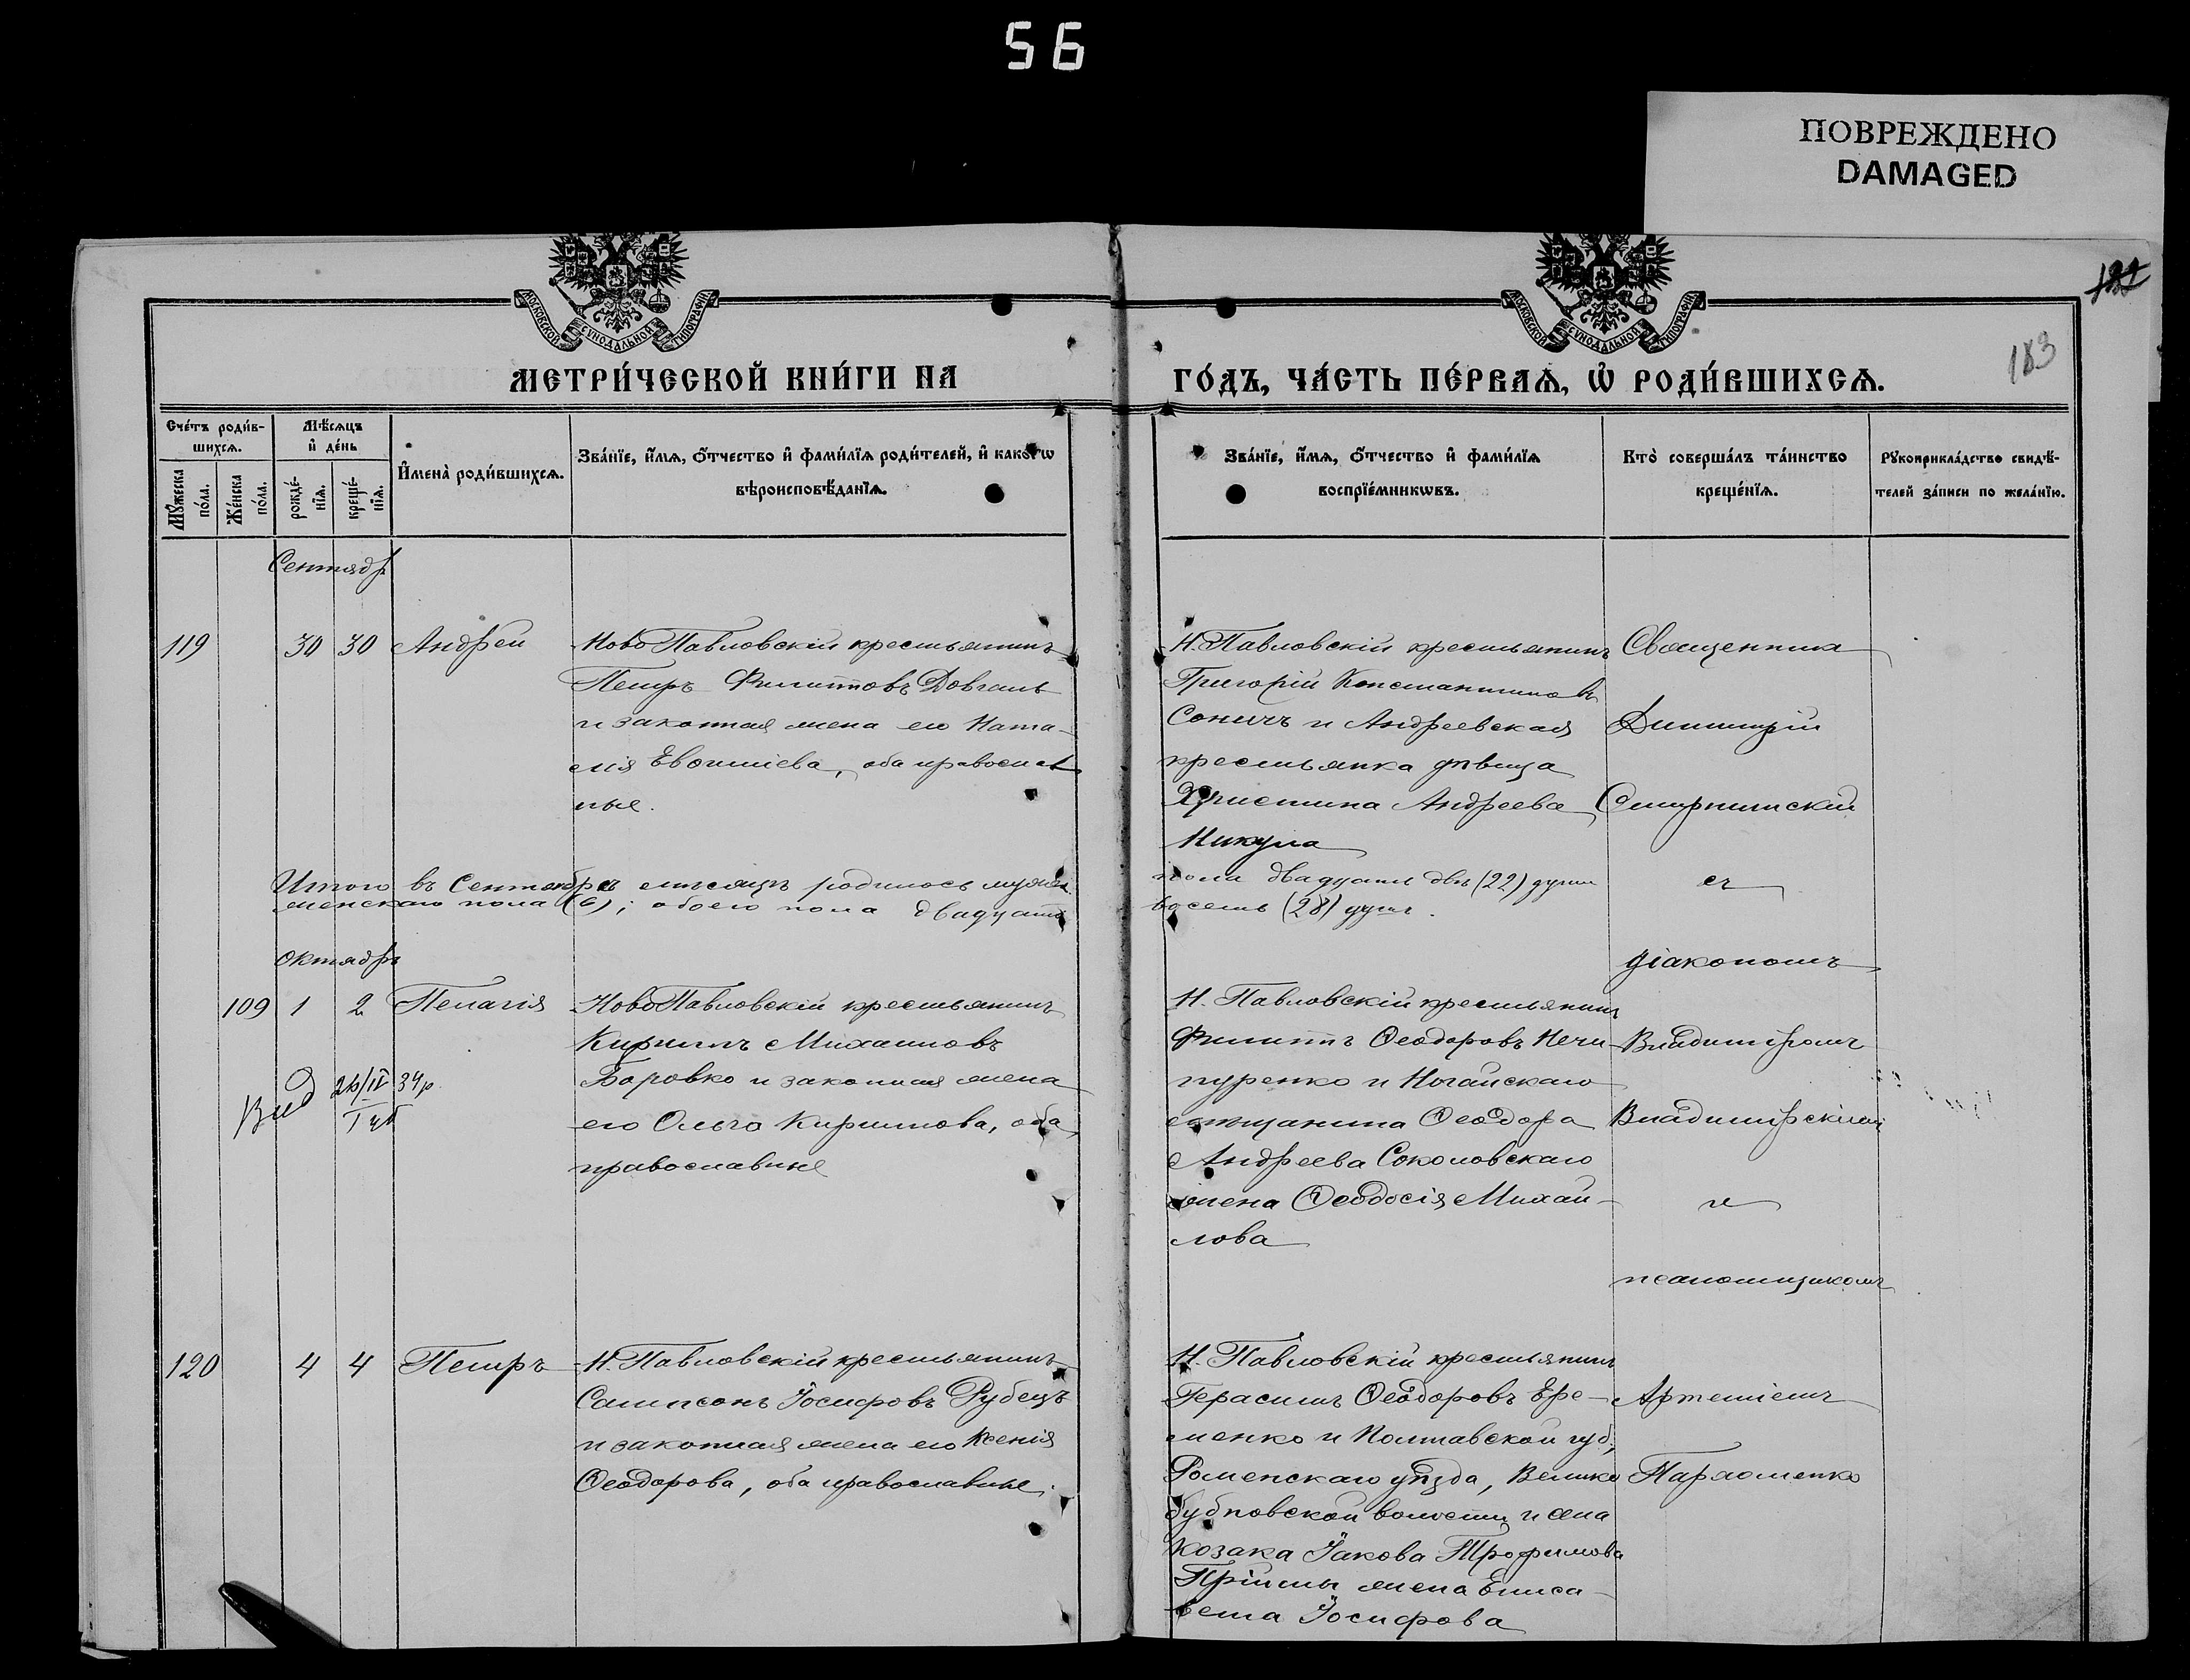 56
ПОВРЕЖДЕНО
DAMAGED
183
МОСКОВСКОЙ СѴНОДАЛЬНОЙ ТИПОГРАФІИ
МОСКОВСКОЙ СѴНОДАЛЬНОЙ ТИПОГРАФІИ
МЕТРИ́ЧЕСКОЙ КНИ́ГИ НА
ГО́ДЪ, ЧА́СТЬ ПЕ́РВАѦ, Ѡ҆ РОДИ́ВШИХСѦ.
Сче́тъ роди́в-
шихсѧ.
Мꙋ́жеска по́ла.
Же́нска по́ла.
Мѣ́сѧцъ
и҆ де́нь
рожде́-нїѧ.
креще́-нїѧ.
И҆мена̀ роди́вшихсѧ.
Зва́нїе, и҆́мѧ, ѻ҆́тчество и҆ фами́лїѧ роди́телей, и҆ како́гѡ
вѣроисповѣ́данїѧ.
Зва́нїе, и҆́мѧ, ѻ҆́тчество и҆ фами́лїѧ
воспрїе́мникѡвъ.
Кто̀ соверша́лъ та́инство
креще́нїѧ.
Рꙋкоприкла́дство свидѣ́-
телей за́писи по жела́нїю.
Сентябр
119 30 30 Андрей
Ново Павловскій крестьянинъ
Петръ Филипповъ Довгаль
и законная жена его Ната-
лія Евфиміева, оба православ
ные.
Н. Павловскій крестьянинъ
Григорій Константиновъ
Сокичъ и Андреевская
крестьянка дѣвица
Христина Андреева
Микула
Священник
Димитрій
Смирнитскій
съ
Итого въ Сентябрѣ мѣсяцѣ родилось мужск
пола двадцать двѣ (22) души
женскаго пола (6); обоего пола двадцать
восемь (28) душъ.
октябрь
109 1 2 Пелагія
Ново Павловскій крестьянинъ
Кириллъ Михаиловъ
Боровко и законная жена
его Ольга Кириллова, оба
православные
Вид 34р.
Н. Павловскій крестьянинъ
Филиппъ Ѳеодоровъ Нечи-
пуренко и Ногайскаго
мѣщанина Ѳеодора
Андреева Соколовскаго
жена Ѳеодосія Михай-
лова
діакономъ
Владиміромъ
Владимірскимъ
и
псаломщикомъ
120 4 4 Петръ
Н. Павловскій крестьянинъ
Сампсонъ Іосифовъ Рубецъ
и законная жена его Ксенія
Ѳеодорова, оба православные.
Н. Павловскій крестьянинъ
Герасимъ Ѳеодоровъ Ере-
менко и Полтавской губ,
Роменскаго уѣзда, Велико
бубновской волости и села
козака Іакова Трофимова
Прiймы жена Елиса-
вета Іосифова
Артеміемъ
Пархоменко